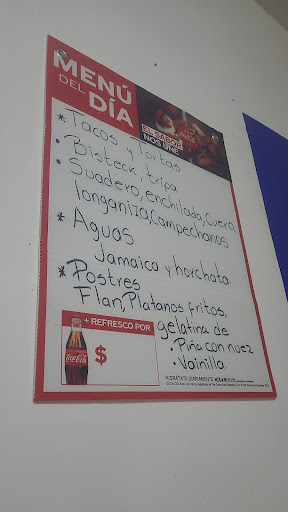 MENÚ
DEL DÍA
EL SABOR
NOS UNE
* Tacos y Tortas
• Bisteck, tripa
• Suadero, enchilada, Cuero
longaniza, Campechanos
* Aguas
Jamaica y horchata
* Postres
Flan, Platanos fritos,
gelatina de
• Piña con nuez
• Vainilla
+ REFRESCO POR
Coca-Cola
$